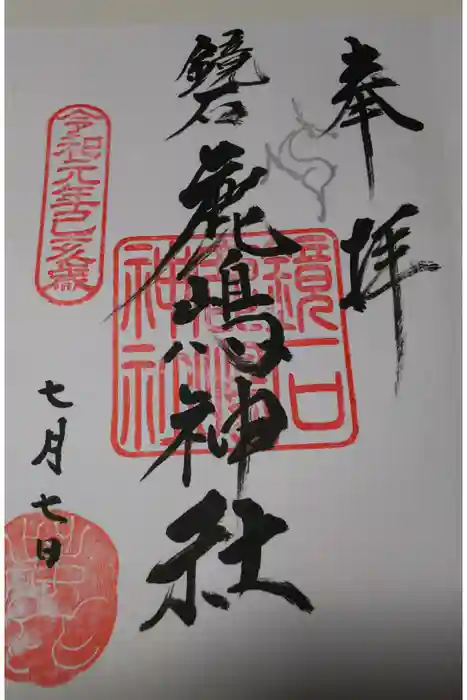 奉拝
鏡石
鹿嶋神社
鏡石
神社
令和元年己亥歳
七月七日